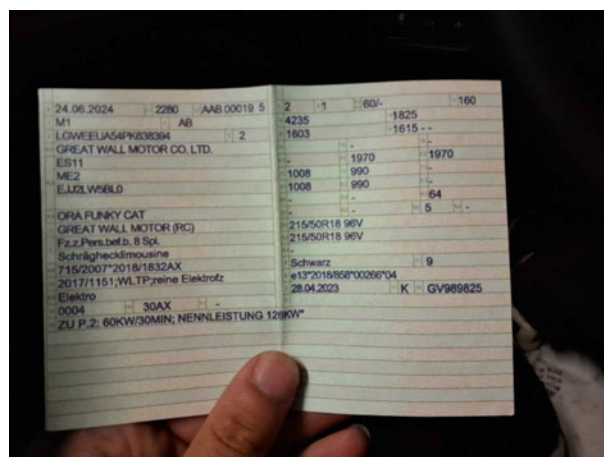 24.06.2024 2280 AAB 00019 5
M1 AB
LGWEEUA54PK638394 2
GREAT WALL MOTOR CO. LTD.
ES11
ME2
EJJ2LW5BL0
-
ORA FUNKY CAT
GREAT WALL MOTOR (RC)
Fz.z.Pers.bef.b. 8 Spl.
Schräghecklimousine
715/2007*2018/1832AX
2017/1151;WLTP;reine Elektrofz
Elektro
0004 30AX -
ZU P.2: 60KW/30MIN; NENNLEISTUNG 126KW*
2 1 60/- 160
4235 1825
1603 1615 - -
- -
- 1970 1970
1008 990 -
1008 990 -
- - 64
- - 5 -
215/50R18 96V
215/50R18 96V
-
Schwarz 9
e13*2018/858*00266*04
28.04.2023 K GV989825